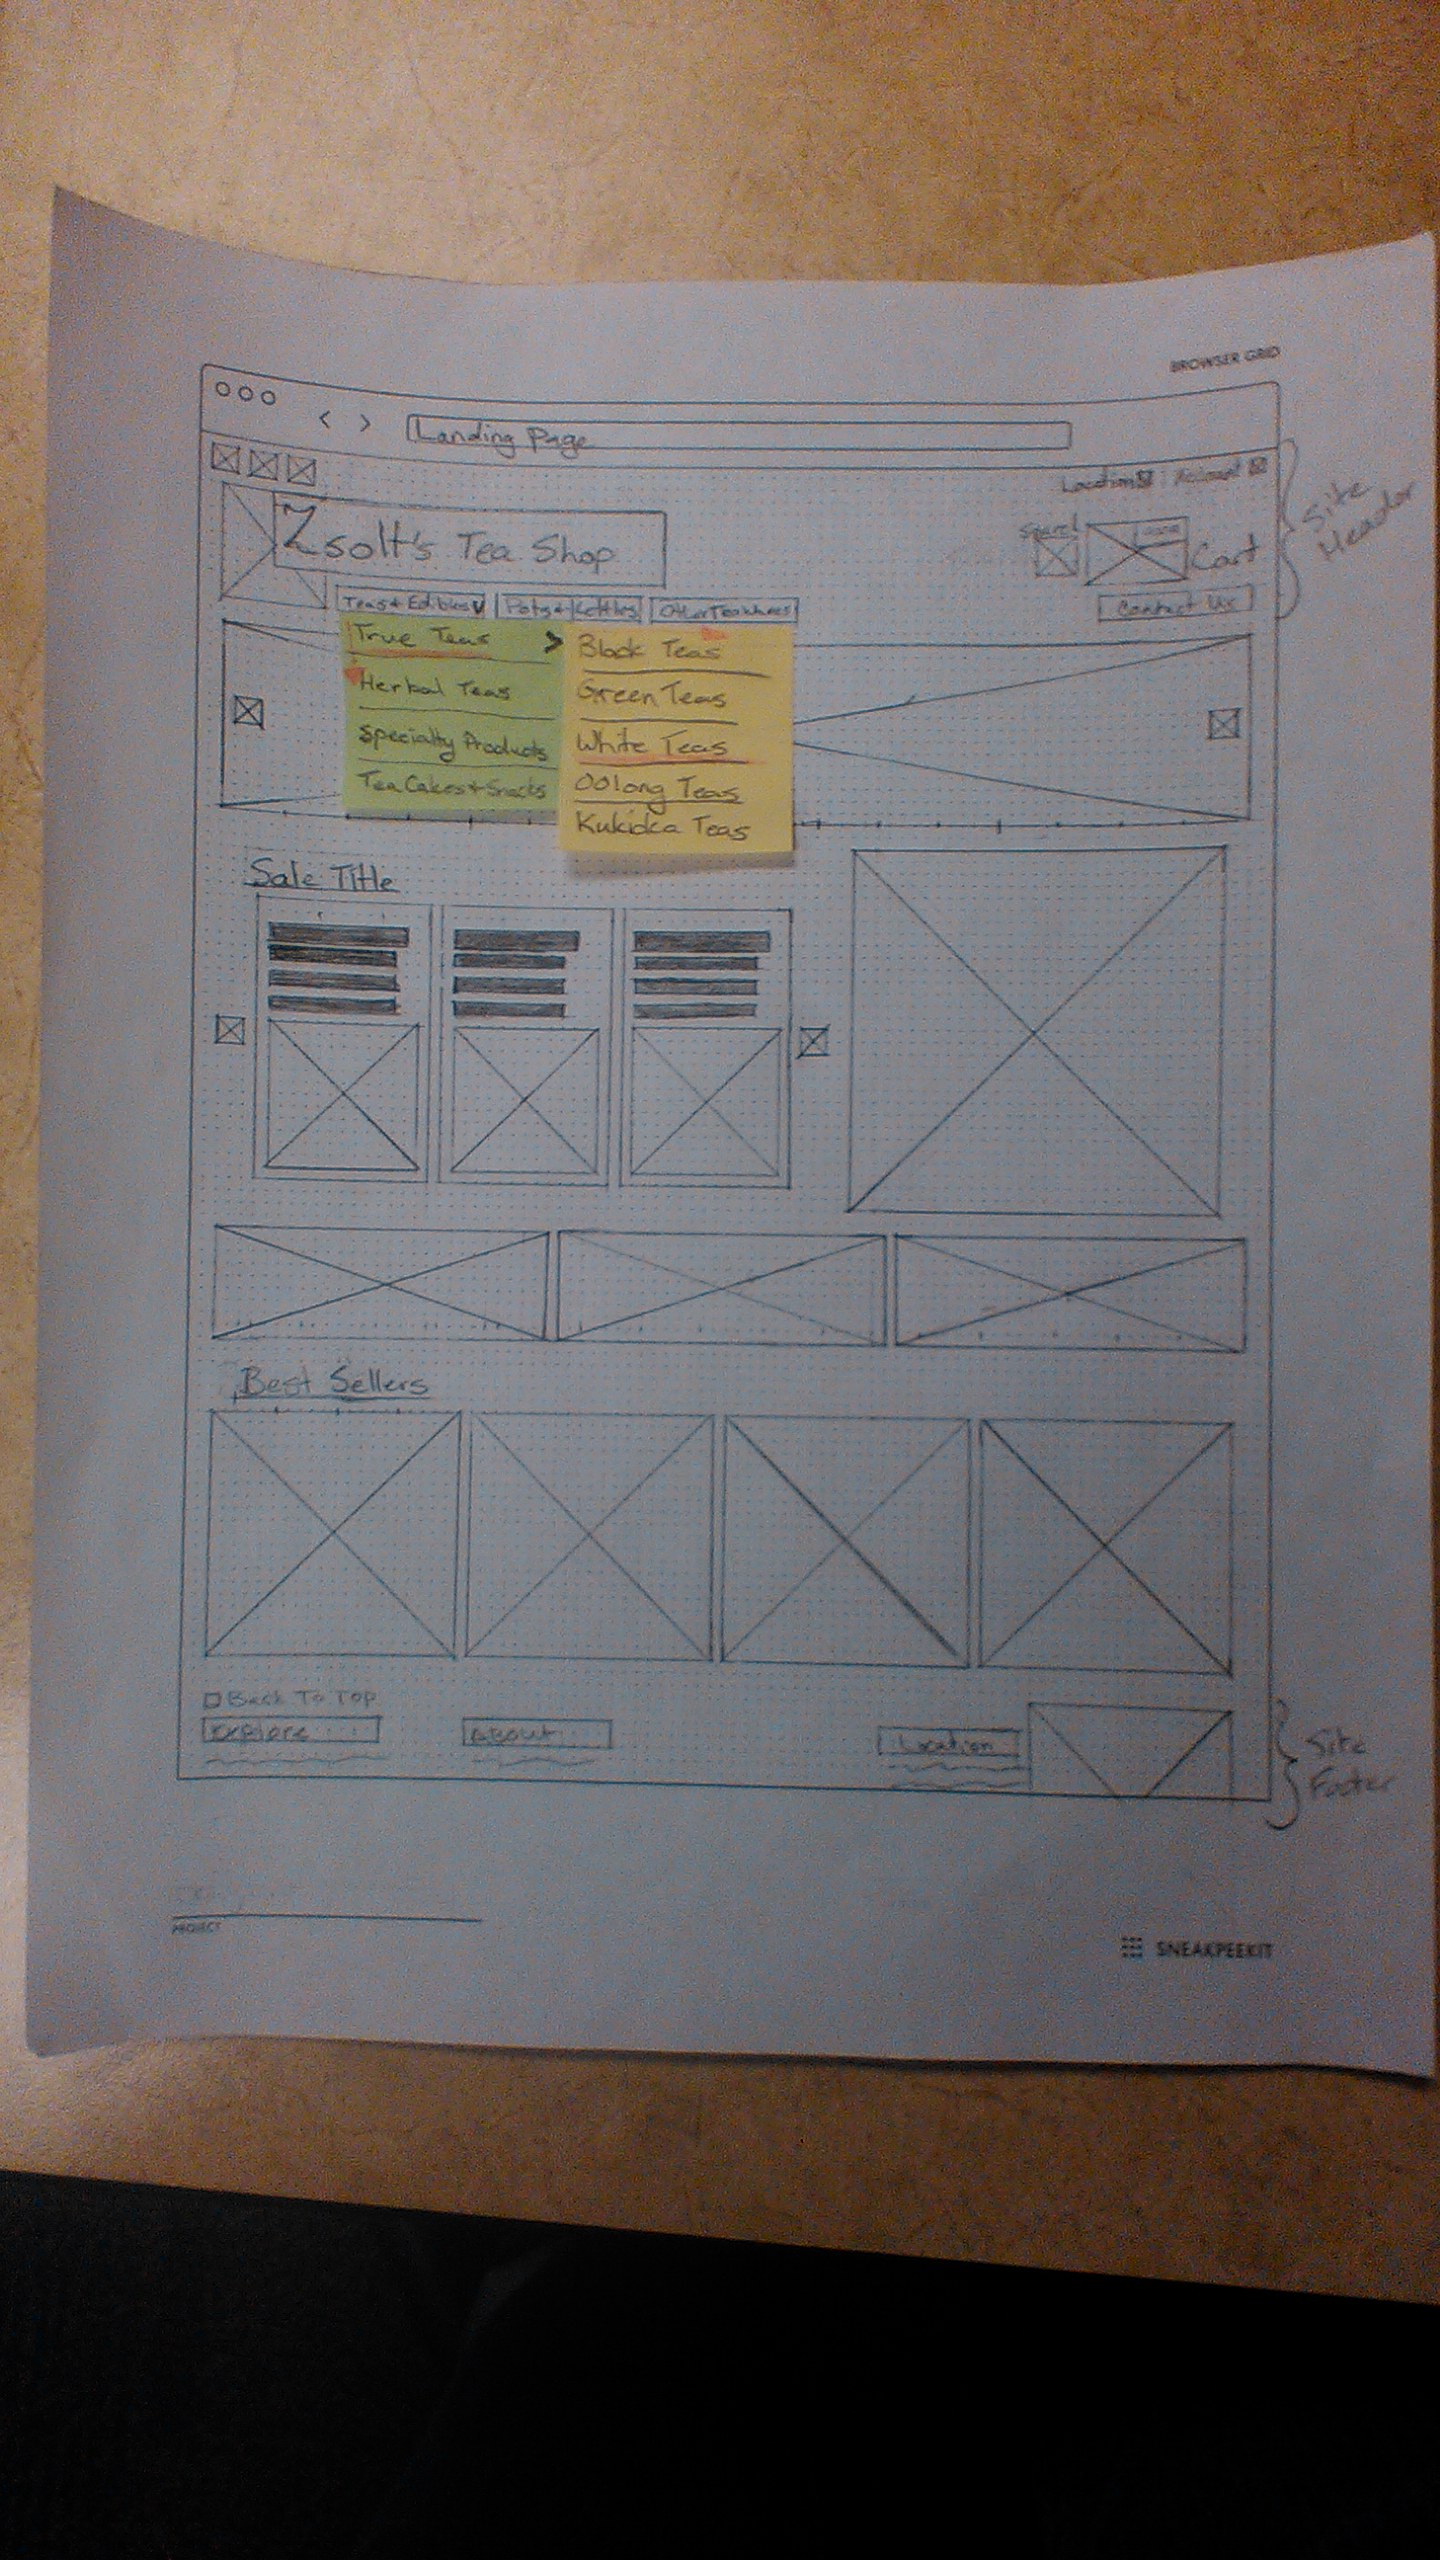 BROWSER GRID
Landing Page
Location Account
Site Header
Zsolt's Tea Shop
Search
Cart
Teas + Edibles Pots + Kettles Other Teawares
Contact Us
True Teas >
Herbal Teas
Specialty Products
Tea Cakes + Snacks
Black Teas
Green Teas
White Teas
Oolong Teas
Kukicka Teas
Sale Title
Best Sellers
Back To Top
Explore About Location
Site Footer
PROJECT
SNEAKPEEKIT